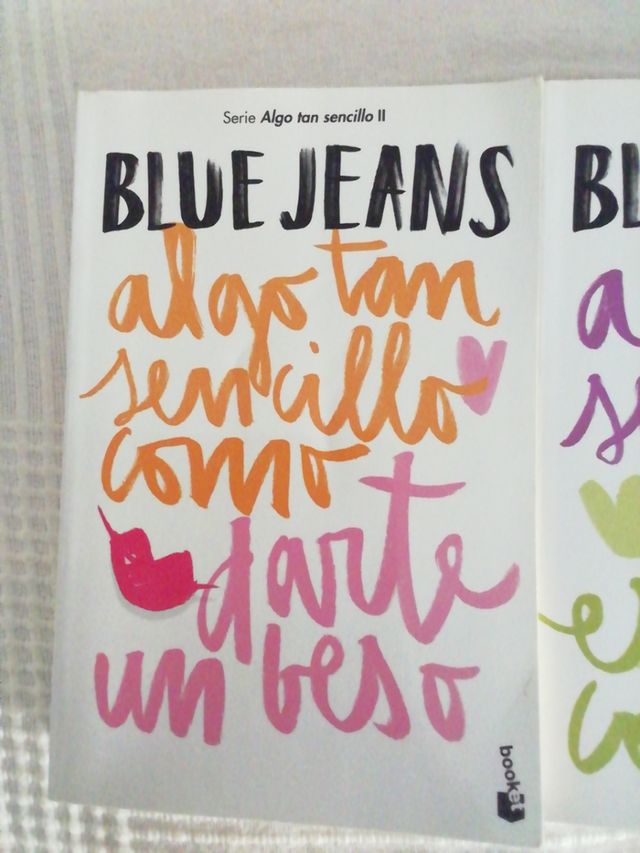 Serie Algo tan sencillo II
BLUE JEANS
algo tan
sencillo
como
darte
un beso
booket
BL
a
s